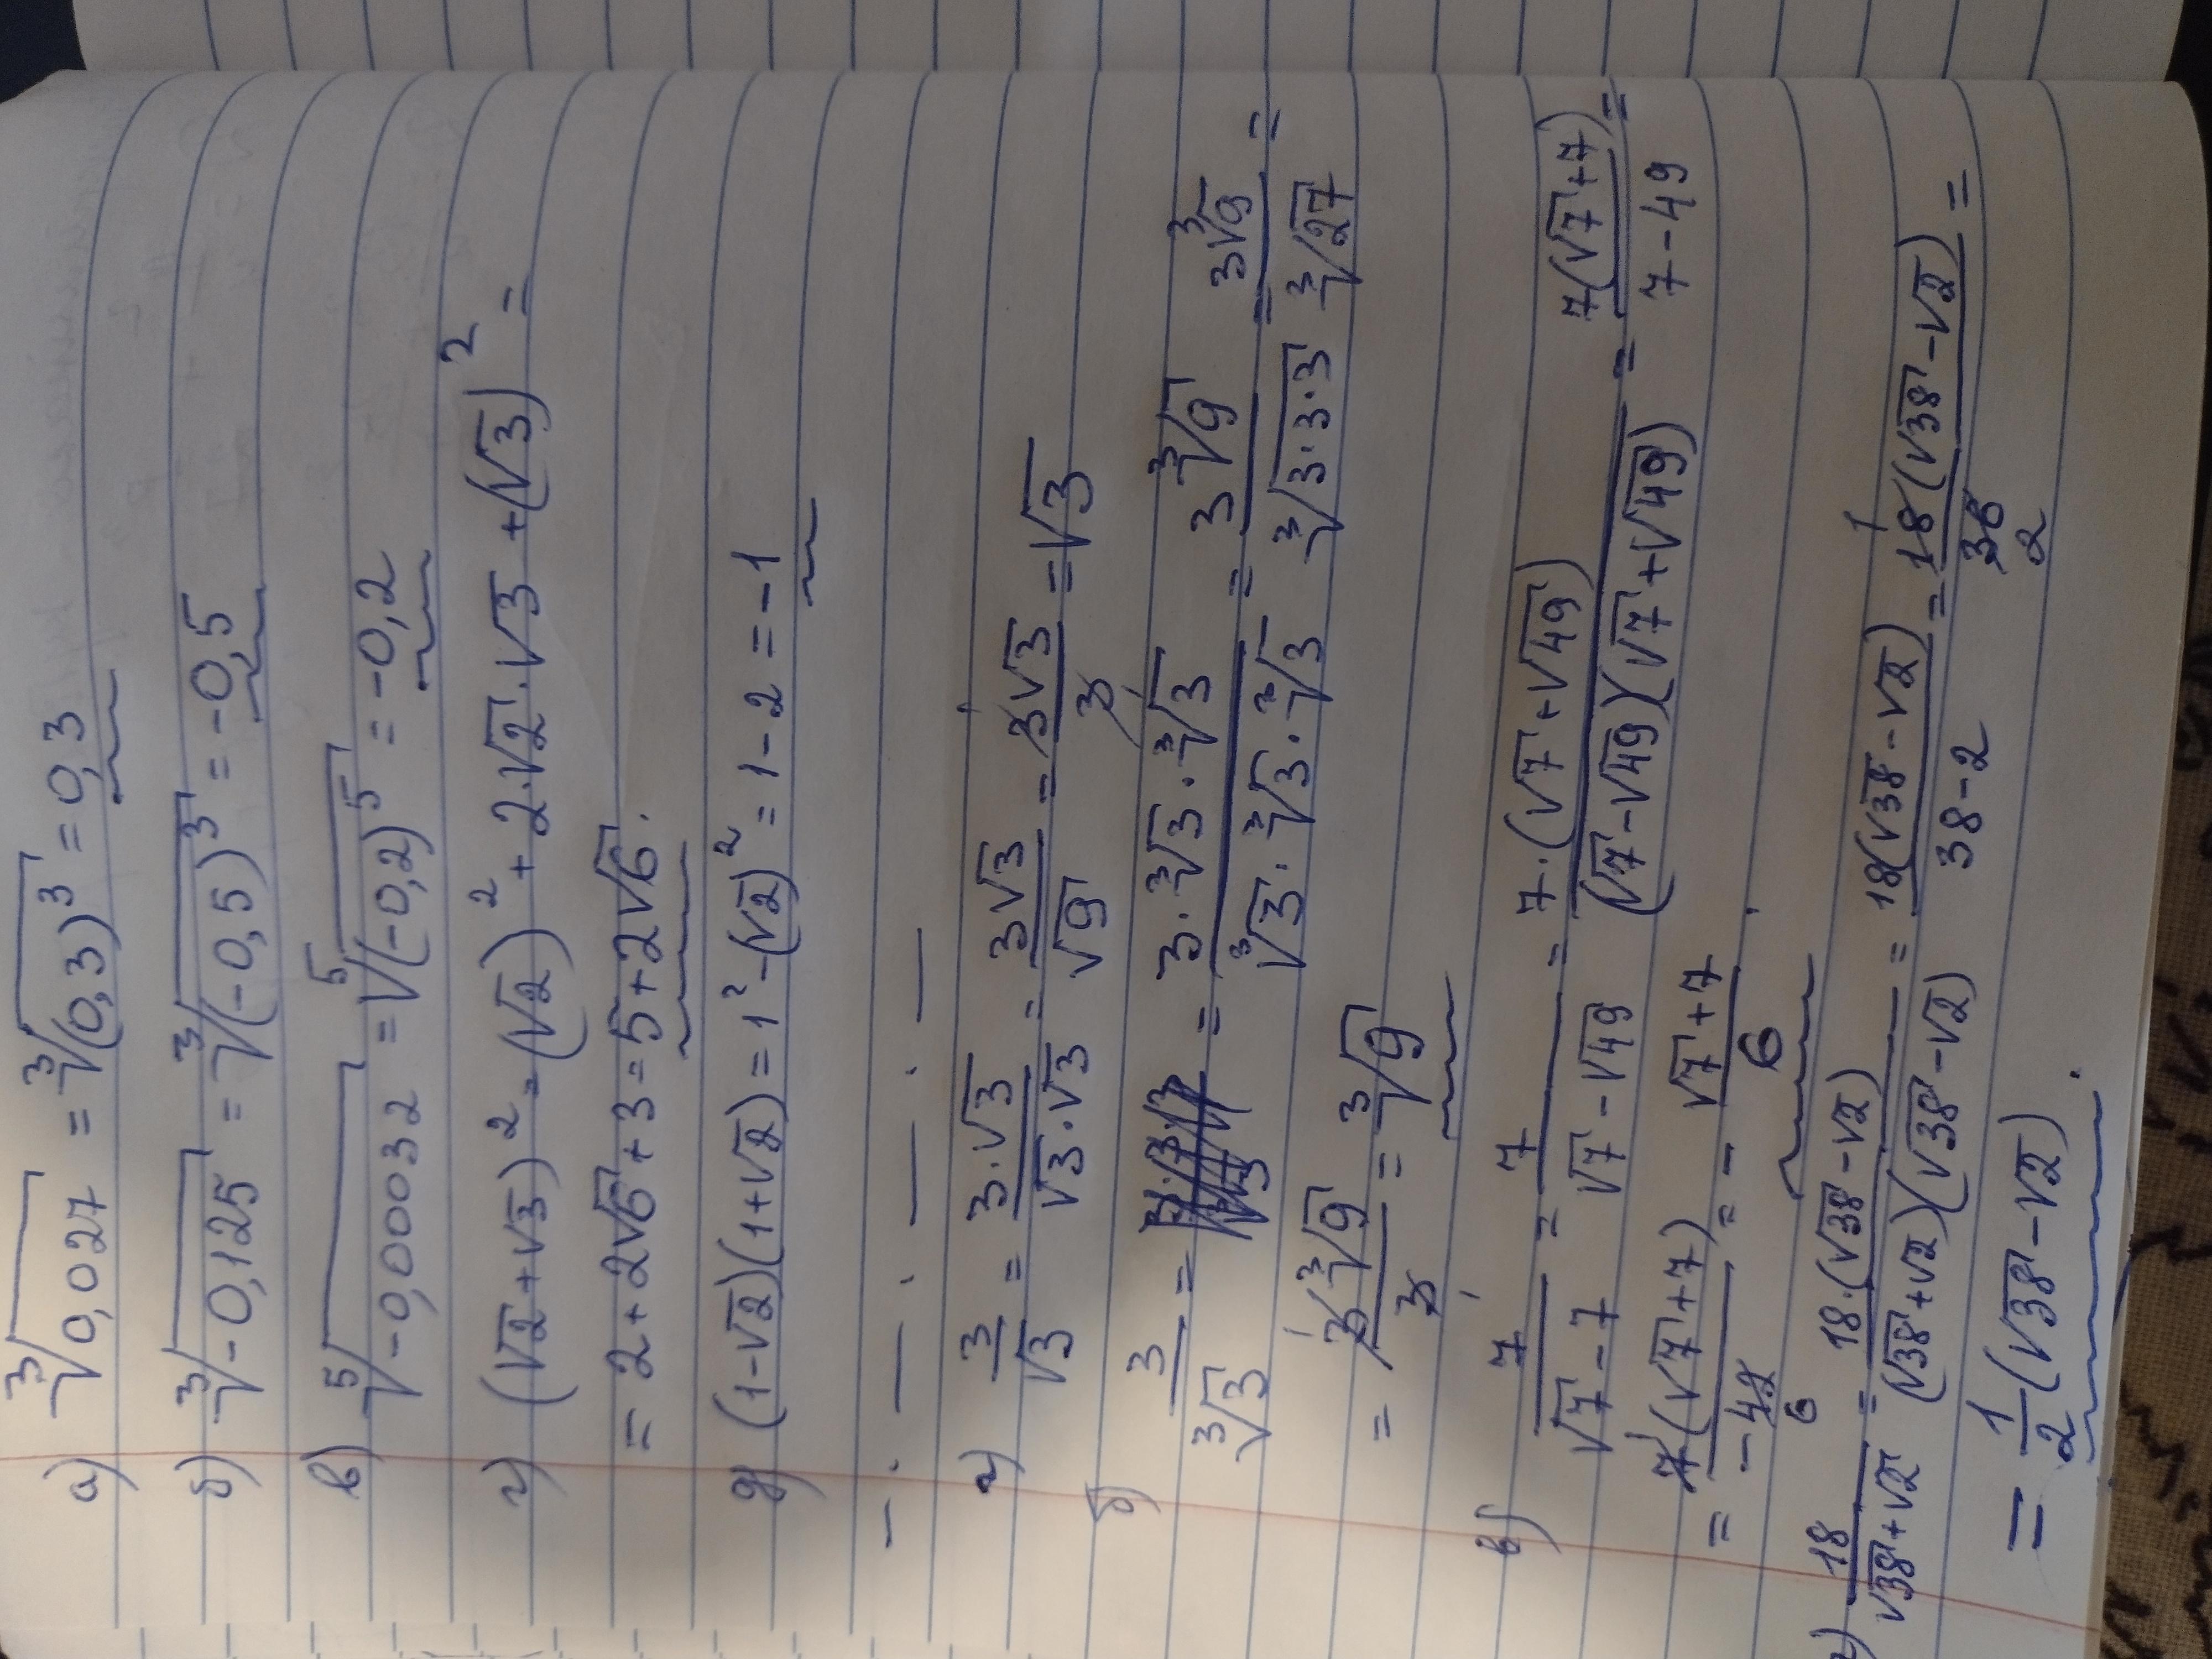 а) ∛0,027 = ∛(0,3)³ = 0,3
б) ∛-0,125 = ∛(-0,5)³ = -0,5
в) ⁵√-0,00032 = ⁵√(-0,2)⁵ = -0,2
г) (√2+√3)² = (√2)² + 2·√2·√3 + (√3)² =
= 2+2√6+3 = 5+2√6.
д) (1-√2)(1+√2) = 1²-(√2)² = 1-2 = -1
а) 3/√3 = 3·√3/√3·√3 = 3√3/√9 = 3√3/3 = √3
б) 3/∛3 = 3·∛3·∛3/∛3·∛3·∛3 = 3∛9/∛3·3·3 = 3∛9/∛27 =
= 3∛9/3 = ∛9
в) 7/√7-7 = 7/√7-√49 = 7·(√7+√49)/(√7-√49)(√7+√49) = 7(√7+7)/7-49 =
= 7(√7+7)/-42 6 = - √7+7/6.
г) 18/√38+√2 = 18·(√38-√2)/(√38+√2)(√38-√2) = 18(√38-√2)/38-2 = 1 18(√38-√2)/36 2 =
= 1/2(√38-√2).